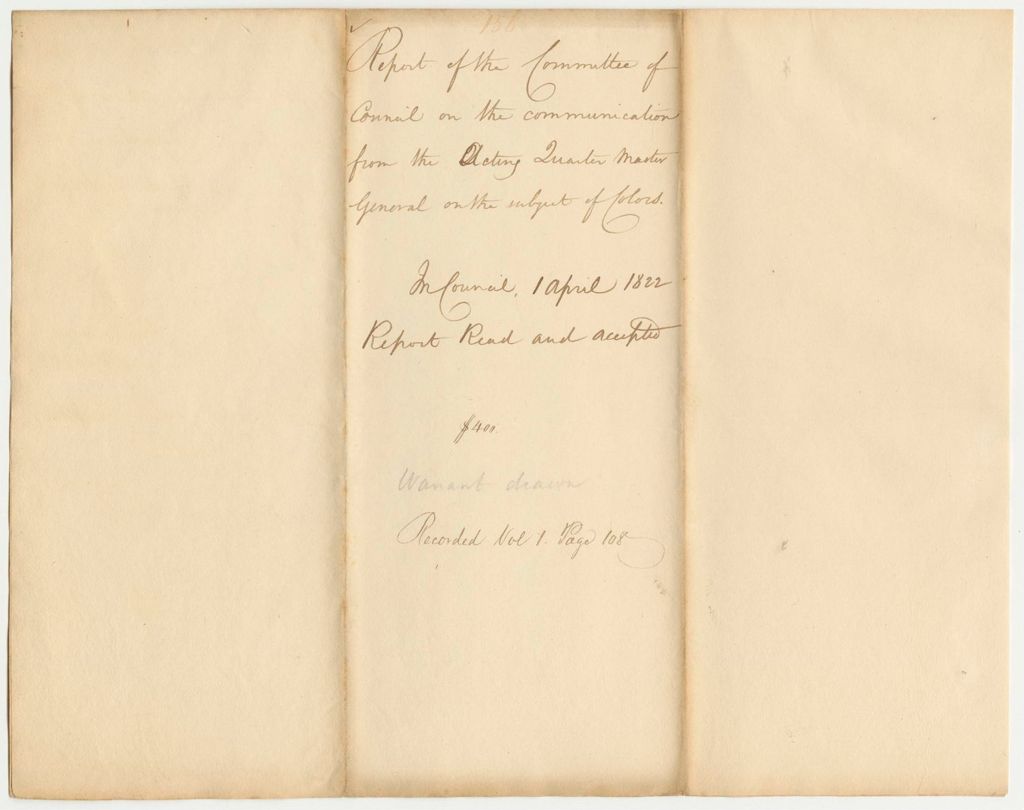 156
Report of the Committee of
Council on the communication
from the Acting Quarter Master
General on the subject of Colors.
In Council, 1 April 1822
Report Read and accepted
$400.
Warrant drawn
Recorded Vol 1. Page 108